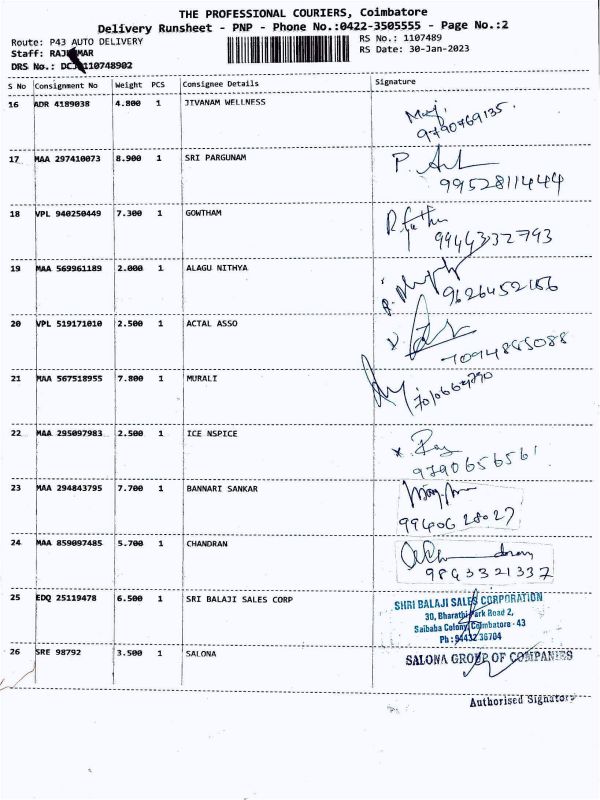 THE PROFESSIONAL COURIERS, Coimbatore
Delivery Runsheet - PNP - Phone No.:0422-3505555 - Page No.:2
Route: P43 AUTO DELIVERY RS No.: 1107489
Staff: RAJKUMAR RS Date: 30-Jan-2023
DRS No.: 110748902
S No Consignment No Weight PCS Consignee Details Signature
16 ADR 4189038 4.800 1 JIVANAM WELLNESS
9790769135.
17 MAA 297410073 8.900 1 SRI PARGUNAM
P.
9952811444
18 VPL 940250449 7.300 1 GOWTHAM
9944332793
19 MAA 569961189 2.000 1 ALAGU NITHYA
9626452156
20 VPL 519171010 2.500 1 ACTAL ASSO
7094855088
21 MAA 567518955 7.800 1 MURALI
22 MAA 295097983 2.500 1 ICE NSPICE
9790656561
23 MAA 294843795 7.700 1 BANNARI SANKAR
9940628027
24 MAA 859097485 5.700 1 CHANDRAN
9843321337
25 EDQ 25119478 6.500 1 SRI BALAJI SALES CORP
SHRI BALAJI SALES CORPORATION
30, Bharathi Park Road 2,
Saibaba Colony, Coimbatore - 43
Ph : 94432 36704
26 SRE 98792 3.500 1 SALONA
SALONA GROUP OF COMPANIES
Authorised Signatory